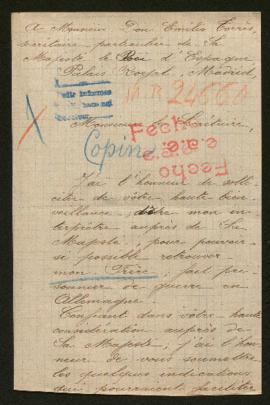 A Monsieur Don Emilio Torrès,
secrétaire particulier de Sa
Majesté le Roi d'Espagne
Palais Royal, Madrid,
Pedir informes
24660
Monsieur le Secrétaire,
Fecho
Fecho
Copin
J'ai l'honneur de solli-
citer de votre haute bien-
veillance d'être mon in-
terprète auprès de Sa
Majesté, pour pouvoir
si possible retrouver
mon Frère, fait pri-
sonnier de guerre en
Allemagne.
Confiant dans votre haute
considération auprès de
Sa Majesté, j'ai l'hon-
neur de vous soumettre
les quelques indications
qui pourraient faciliter